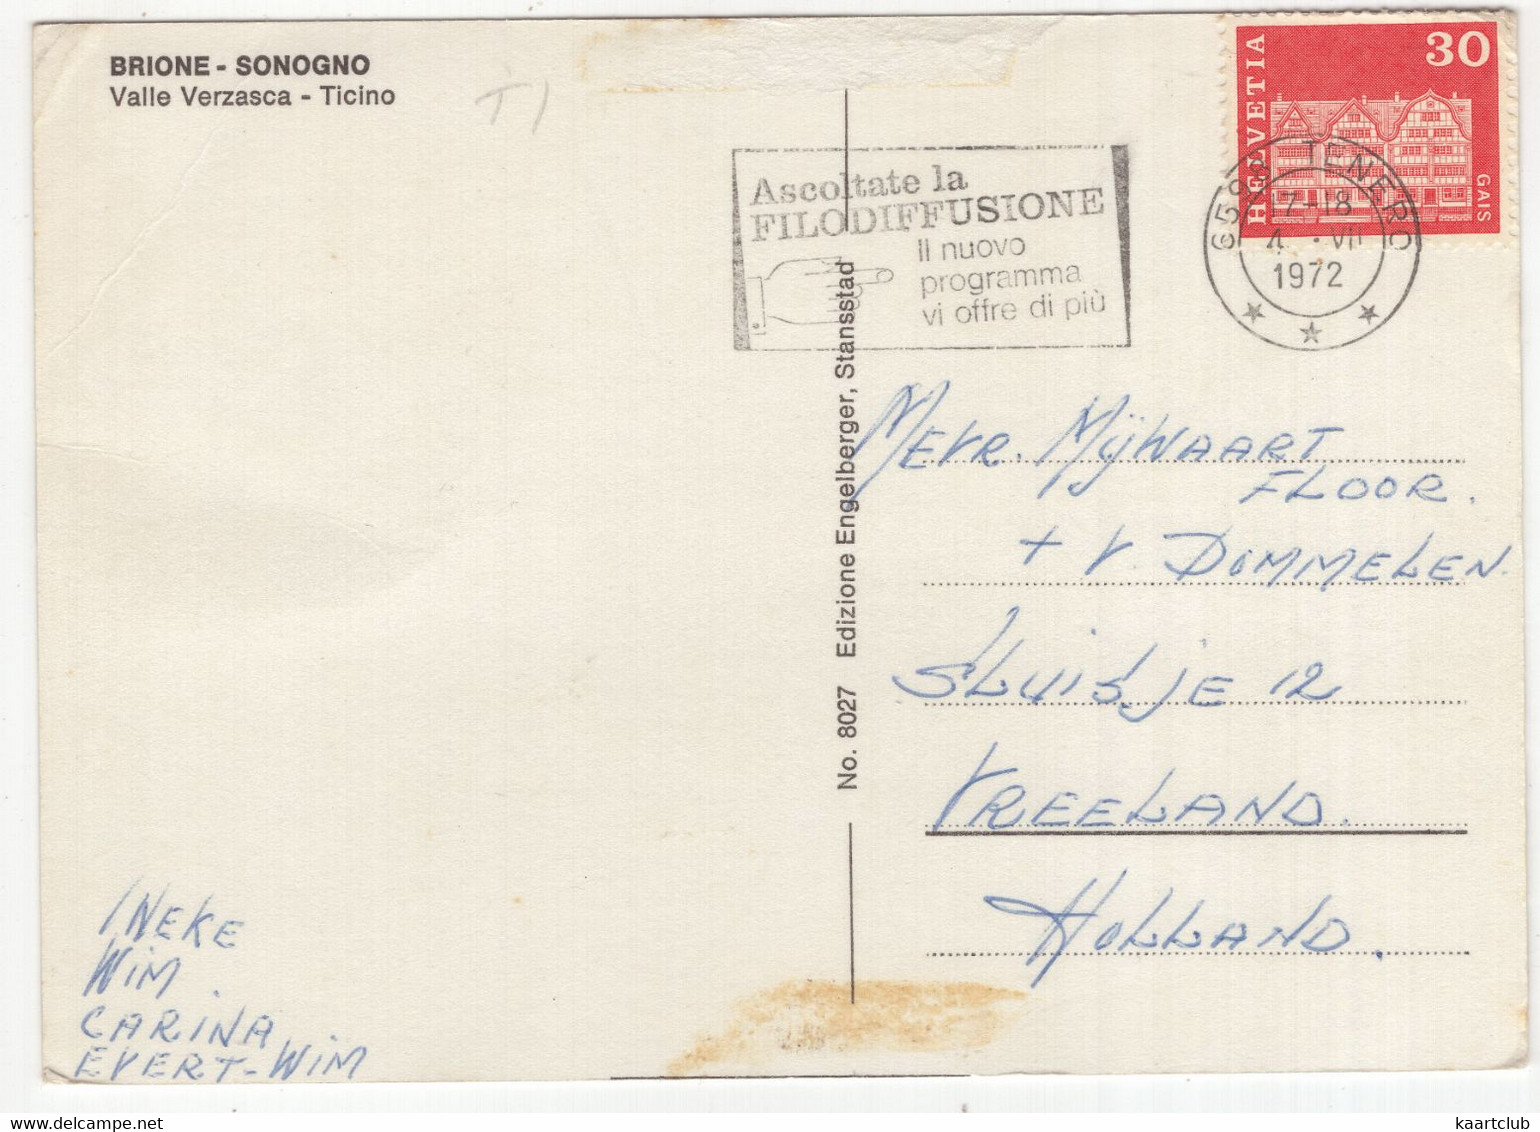 BRIONE - SONOGNO
Valle Verzasca - Ticino
T1
Ascoltate la
FILODIFFUSIONE
Il nuovo
programma
vi offre di più
HELVETIA
30
GAIS
6598 TENERO
17-18
4. VII
1972
No. 8027 Edizione Engelberger, Stansstad
MEVR. MIJWAART
FLOOR.
+ V. DOMMELEN.
SLUISJE 12
VREELAND.
HOLLAND.
INEKE
WIM.
CARINA
EVERT-WIM
delcampe.net
kaartclub